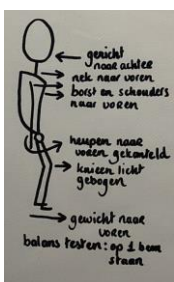 gericht
naar achter
nek naar voren
borst en schouders
naar voren
heupen naar
voren gekanteld
knieen licht
gebogen
gewicht naar
voren
balans testen: op 1 been
staan